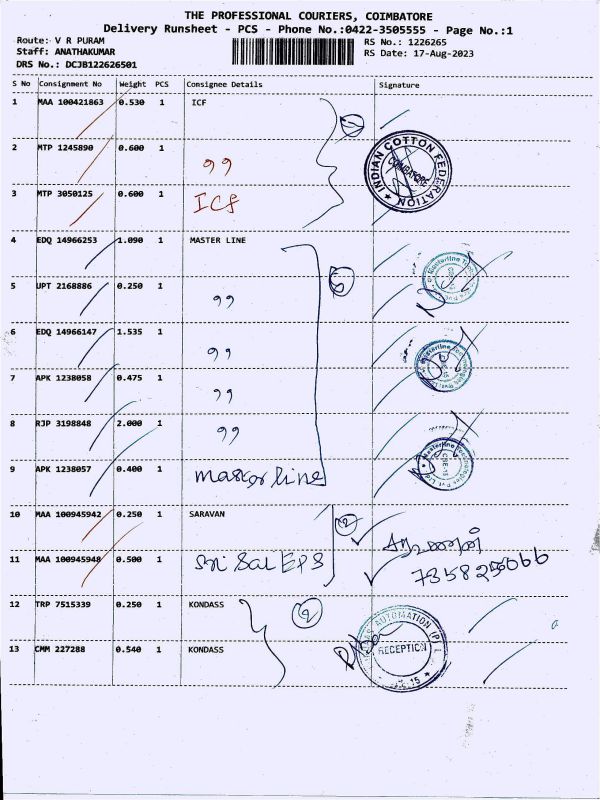 THE PROFESSIONAL COURIERS, COIMBATORE
Delivery Runsheet - PCS - Phone No.:0422-3505555 - Page No.:1
Route: V R PURAM
Staff: ANATHAKUMAR
DRS No.: DCJB122626501
RS No.: 1226265
RS Date: 17-Aug-2023
S No Consignment No Weight PCS Consignee Details Signature
1 MAA 100421863 0.530 1 ICF
2 MTP 1245890 0.600 1 ,,
3 MTP 3050125 0.600 1 ICF
INDIAN COTTON FEDERATION
COIMBATORE
4 EDQ 14966253 1.090 1 MASTER LINE
5 UPT 2168886 0.250 1 ,,
6 EDQ 14966147 1.535 1 ,,
7 APK 1238058 0.475 1 ,,
8 RJP 3198848 2.000 1 ,,
9 APK 1238057 0.400 1 master line
10 MAA 100945942 0.250 1 SARAVAN (2)
11 MAA 100945948 0.500 1 Sri Sai EPS
12 TRP 7515339 0.250 1 KONDASS (2)
13 CMM 227288 0.540 1 KONDASS
AUTOMATION (P)
RECEPTION